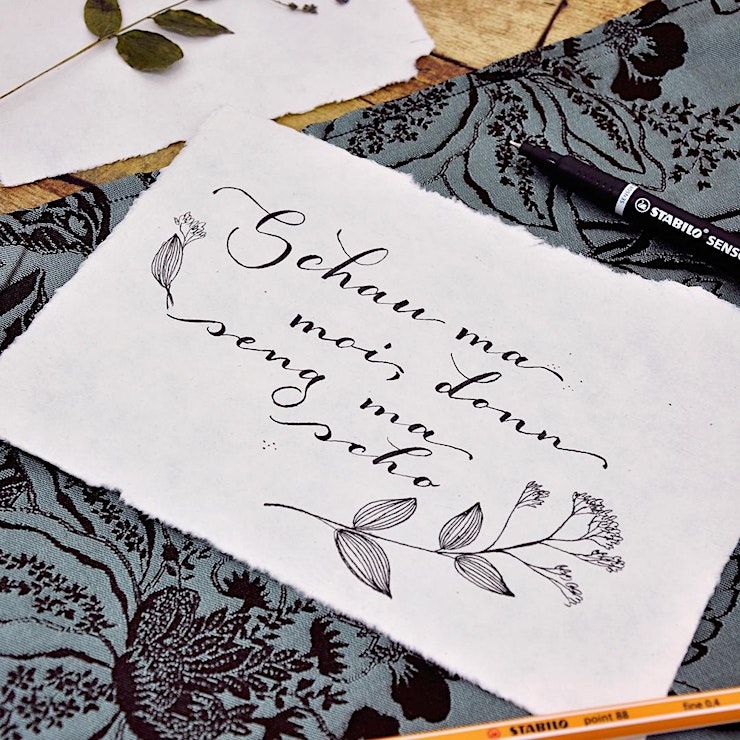 Schau ma
moi, donn
seng ma
scho
STABILO SENS
STABILO point 88 fine 0.4